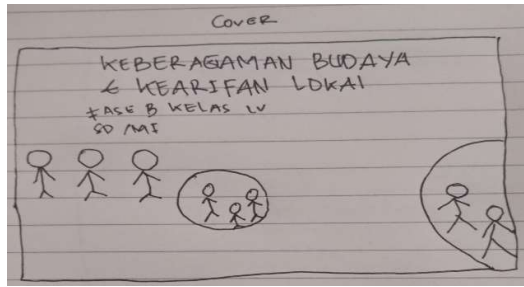 COVER
KEBERAGAMAN BUDAYA
& KEARIFAN LOKAl
FASE B KELAS IV
SD /MI